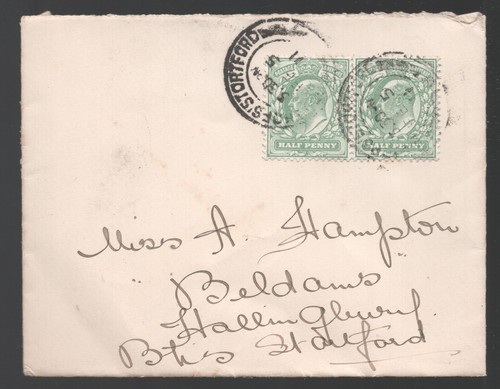 S STORTFORD
HALF PENNY HALF PENNY
Miss A. Hampton
Beldams
Hallingbury
Bps Stortford